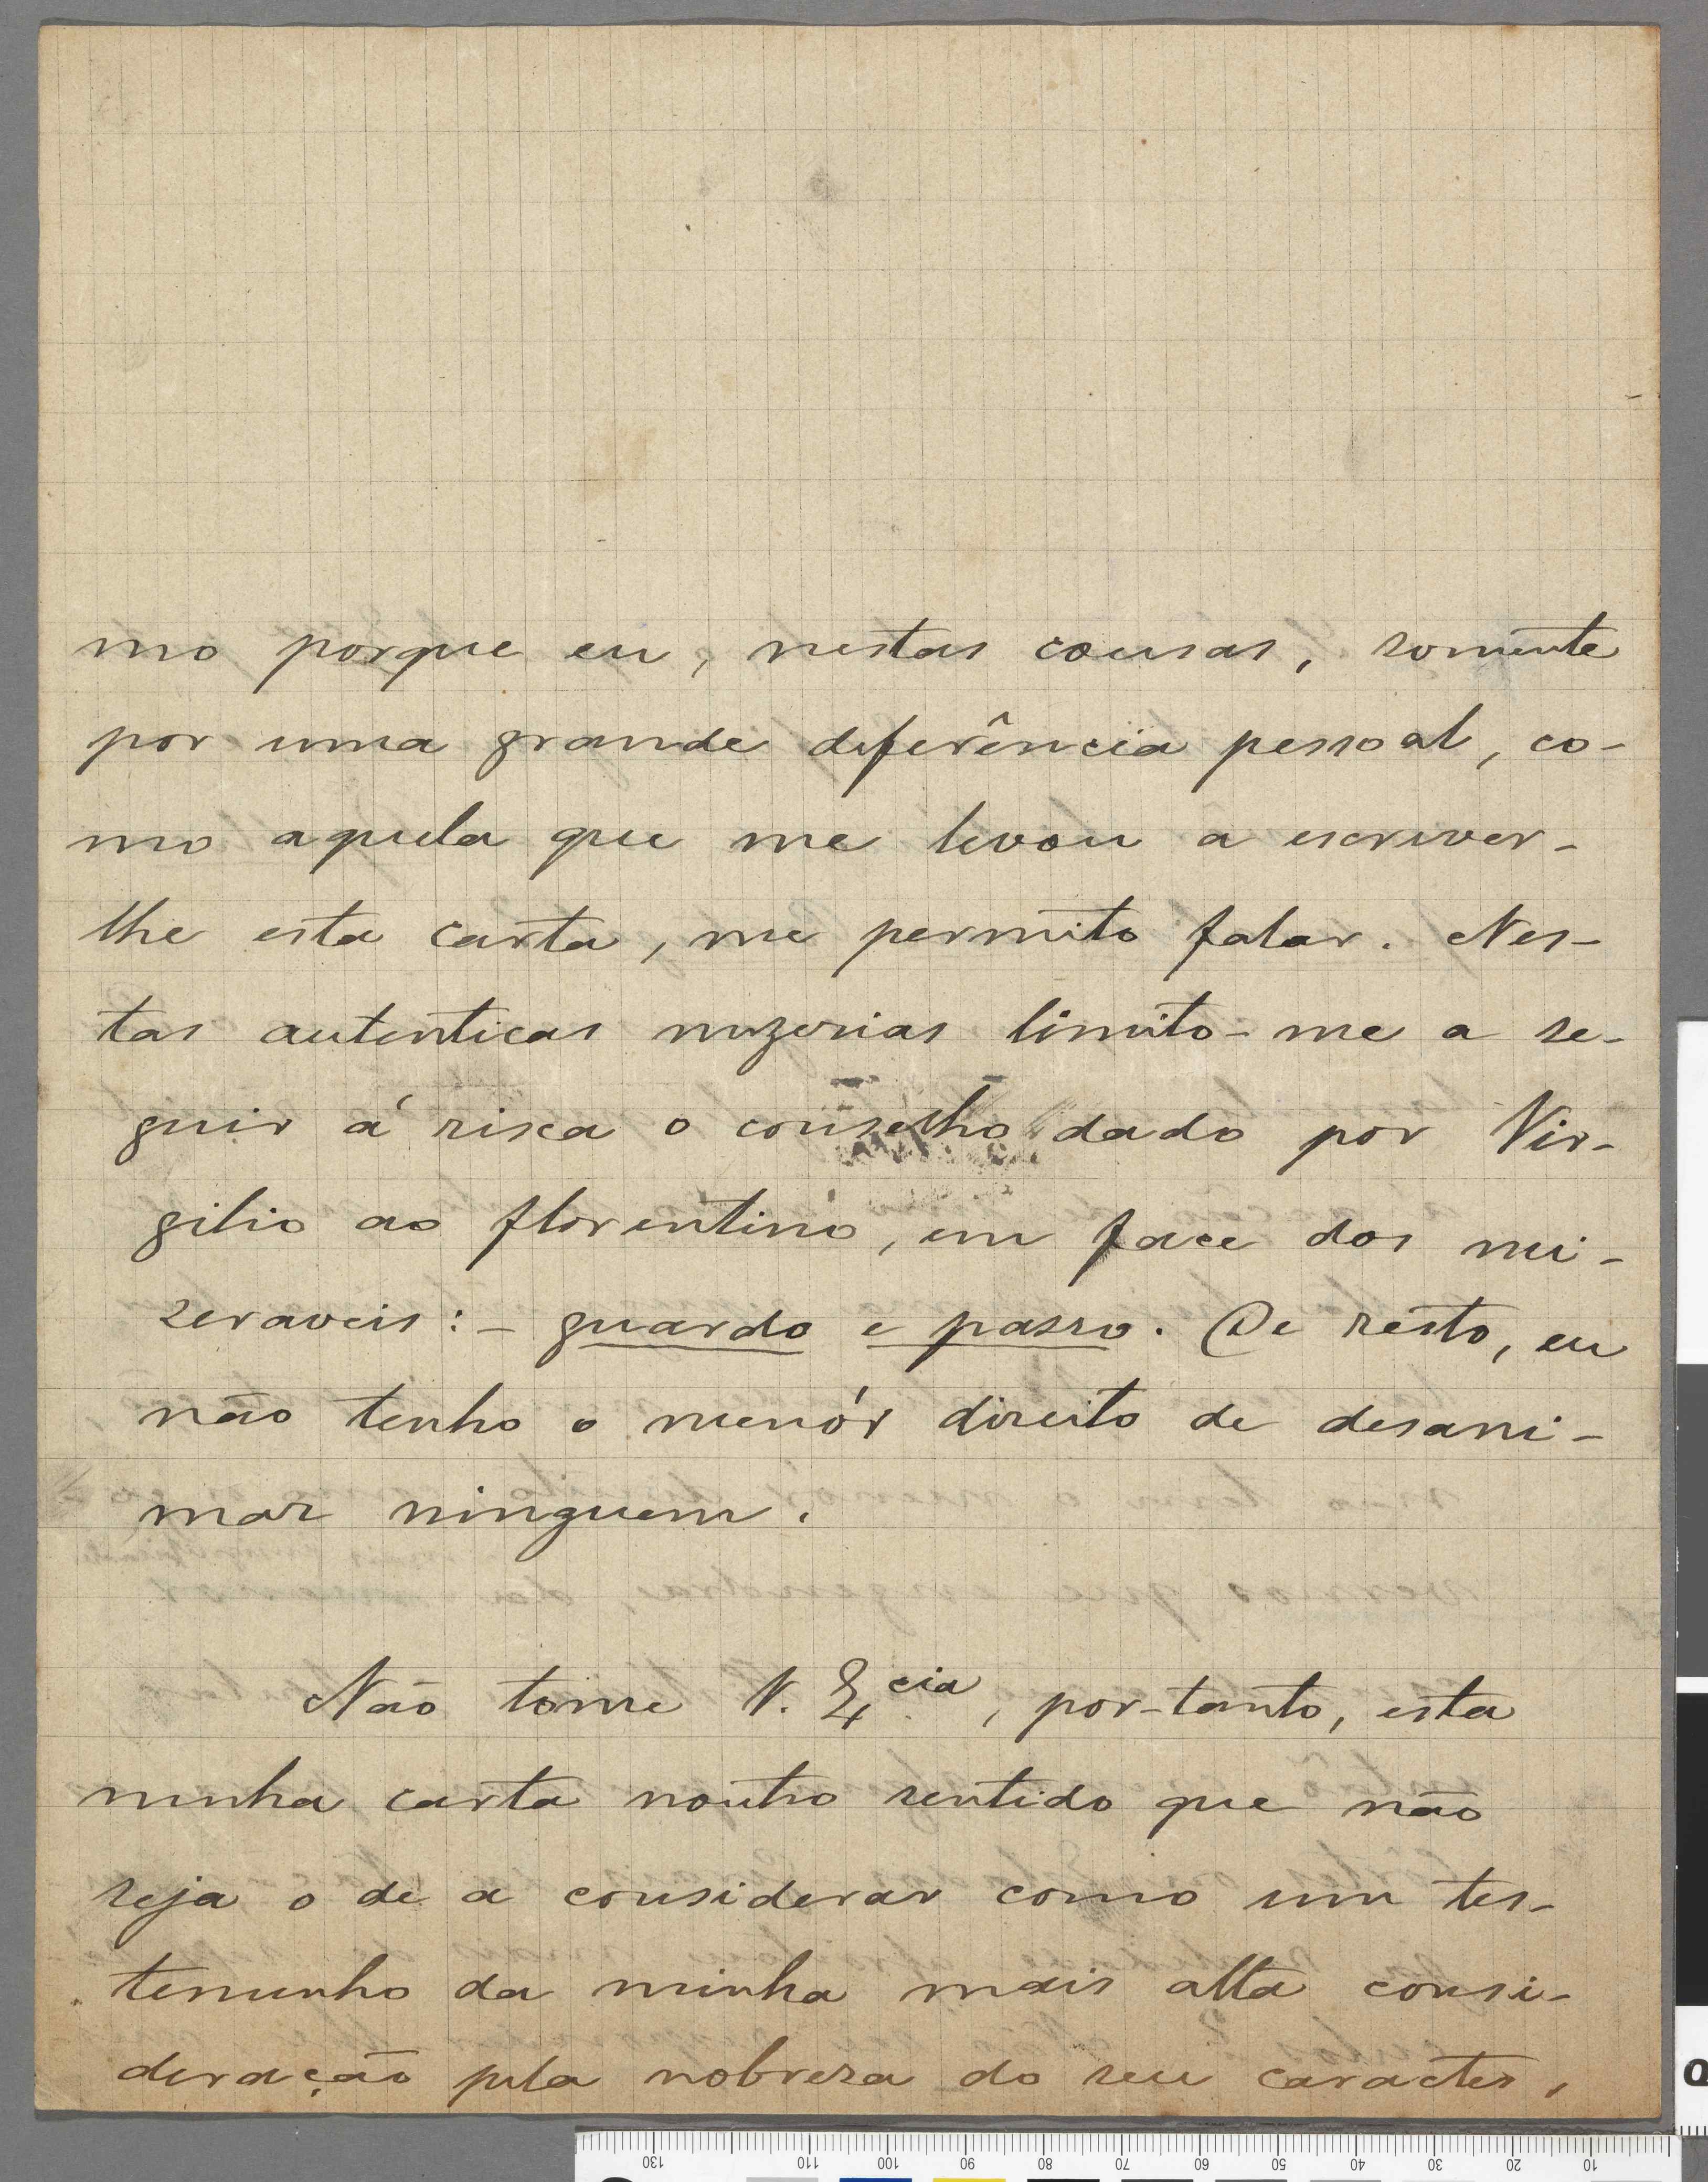 mo porque eu, nestas cousas, somente
por uma grande diferência pessoal, co-
mo aquela que me levou a escrever-
lhe esta carta, me permito falar. Nes-
tas autenticas mizerias limito-me a se-
guir á risca o conselho dado por Vir-
gilio ao florentino, em face dos mi-
zeraveis:- guardo e passo. De resto, eu
não tenho o menór direito de desani-
mar ninguem.
Não tome V. Ex.cia, por-tanto, esta
minha carta noutro sentido que não
seja o de a considerar como um tes-
temunho da minha mais alta consi-
deração pela nobreza do seu caracter,
130 110 100 90 80 70 60 50 40 30 20 10